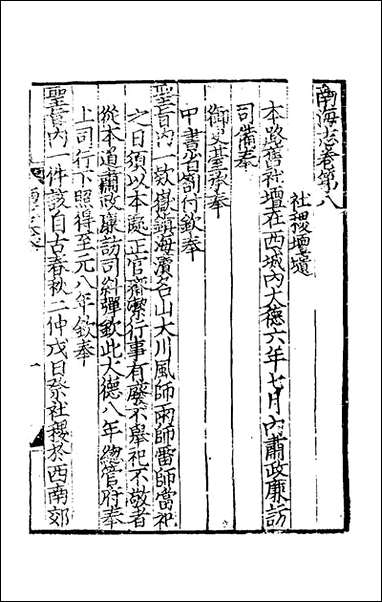 南海志卷第八
社稷壇壝
本路舊社壇在西城內大德六年七月內肅政廉訪
司備奉
御史臺承奉
中書省劄付欽奉
聖旨內一款嶽鎮海瀆名山大川風師雨師雷師當祀
之日須以本處正官齋潔行事有廢不舉祀不敬者
從本道肅政廉訪司糾彈欽此大德八年總管府奉
上司行下照得至元八年欽奉
聖旨內一件該自古春秋二仲戊日祭社稷於西南郊